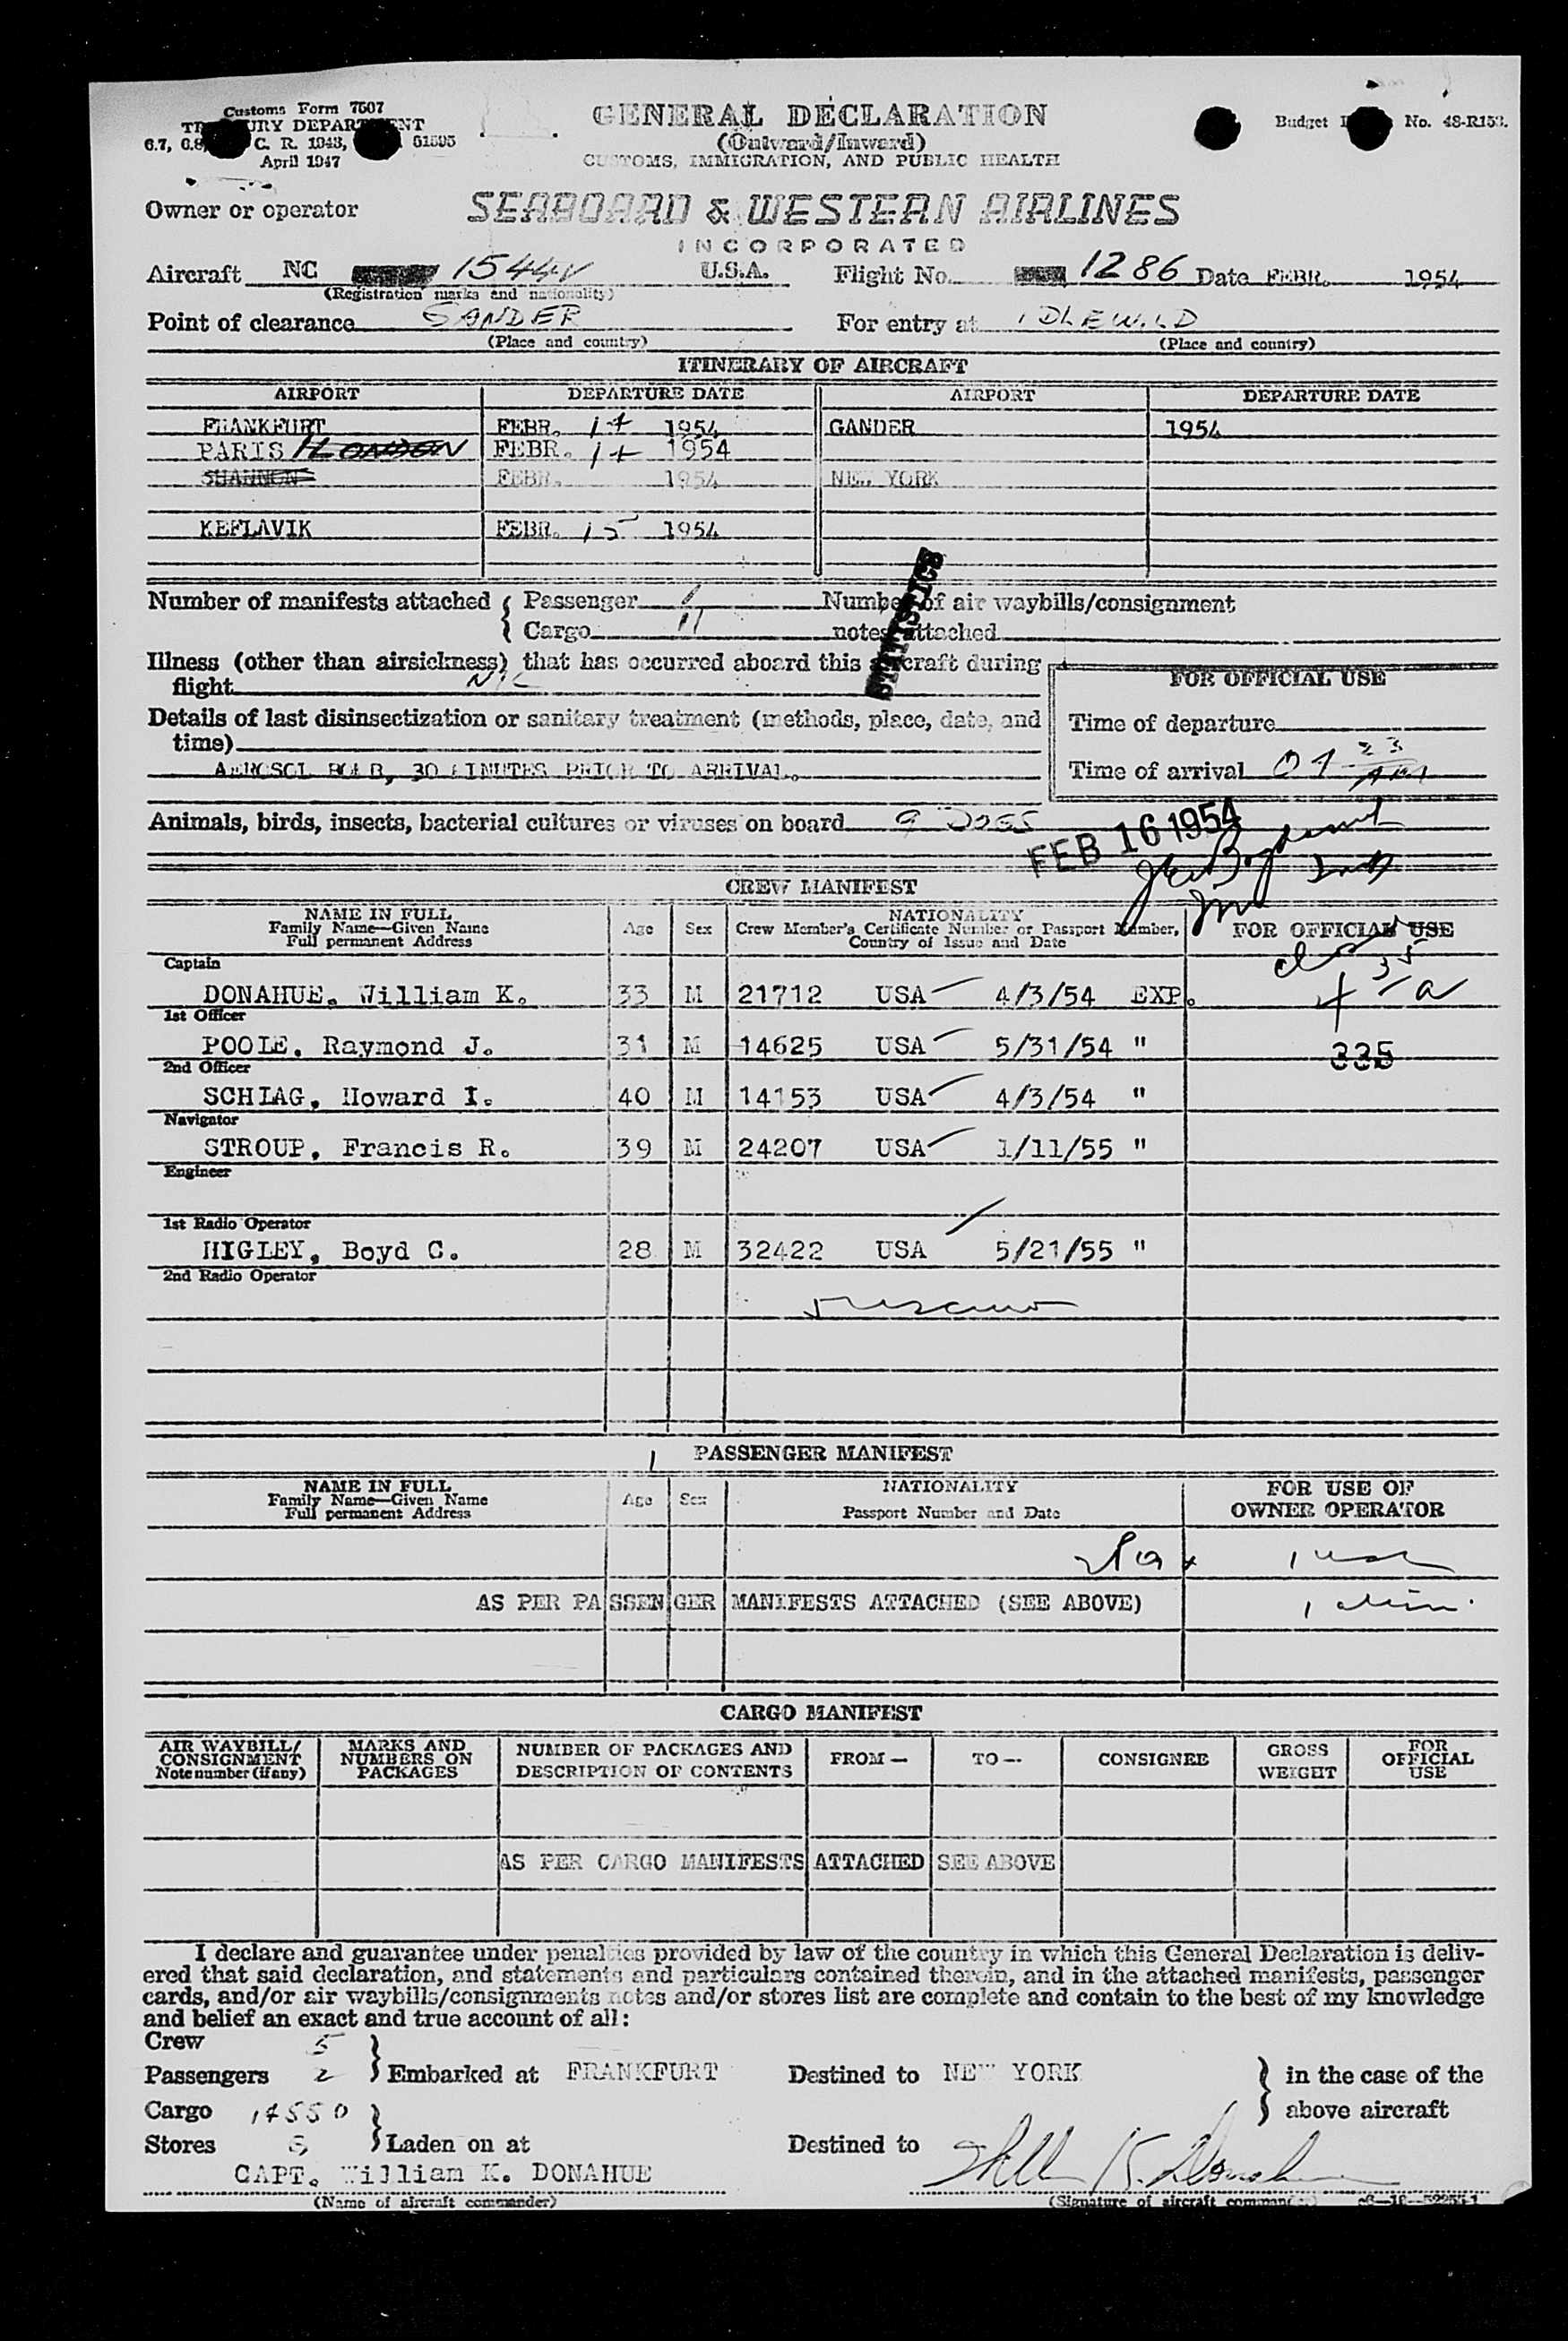 Customs Form 7507
TREASURY DEPARTMENT
6.7, 6.8, C. R. 1943, 51595
April 1947
GENERAL DECLARATION
(Outward/Inward)
CUSTOMS, IMMIGRATION, AND PUBLIC HEALTH
Budget No. 48-R153.
Owner or operator SEABOARD & WESTERN AIRLINES
INCORPORATED
Aircraft NC 1544V U.S.A. Flight No. 1286 Date FEBR. 1954
(Registration marks and nationality)
Point of clearance GANDER For entry at IDLEWILD
(Place and country) (Place and country)
ITINERARY OF AIRCRAFT
AIRPORT DEPARTURE DATE AIRPORT DEPARTURE DATE
FRANKFURT FEBR. 14 1954 GANDER 1954
PARIS / LONDON FEBR. 14 1954
SHANNON FEBR. 1954 NEW YORK
KEFLAVIK FEBR. 15 1954
STATISTICS
Number of manifests attached { Passenger 1 Number of air waybills/consignment
Cargo 11 notes attached
Illness (other than airsickness) that has occurred aboard this aircraft during
flight NIL
FOR OFFICIAL USE
Details of last disinsectization or sanitary treatment (methods, place, date, and
time)
Time of departure
AEROSOL BOMB, 30 MINUTES PRIOR TO ARRIVAL.
Time of arrival 04 23 AM
Animals, birds, insects, bacterial cultures or viruses on board 9 DOGS
FEB 16 1954
CREW MANIFEST
NAME IN FULL
Family Name—Given Name
Full permanent Address
Age Sex
NATIONALITY
Crew Member's Certificate Number or Passport Number,
Country of Issue and Date
FOR OFFICIAL USE
Captain
DONAHUE, William K. 33 M 21712 USA 4/3/54 EXP. 4 35 a
1st Officer
POOLE, Raymond J. 31 M 14625 USA 5/31/54 " 335
2nd Officer
SCHLAG, Howard I. 40 M 14153 USA 4/3/54 "
Navigator
STROUP, Francis R. 39 M 24207 USA 1/11/55 "
Engineer
1st Radio Operator
HIGLEY, Boyd C. 28 M 32422 USA 5/21/55 "
2nd Radio Operator
PASSENGER MANIFEST
NAME IN FULL
Family Name—Given Name
Full permanent Address
Age Sex
NATIONALITY
Passport Number and Date
FOR USE OF
OWNER OPERATOR
AS PER PASSENGER MANIFESTS ATTACHED (SEE ABOVE)
CARGO MANIFEST
AIR WAYBILL/
CONSIGNMENT
Note number (if any)
MARKS AND
NUMBERS ON
PACKAGES
NUMBER OF PACKAGES AND
DESCRIPTION OF CONTENTS
FROM— TO— CONSIGNEE
GROSS
WEIGHT
FOR
OFFICIAL
USE
AS PER CARGO MANIFESTS ATTACHED SEE ABOVE
I declare and guarantee under penalties provided by law of the country in which this General Declaration is deliv-
ered that said declaration, and statements and particulars contained therein, and in the attached manifests, passenger
cards, and/or air waybills/consignments notes and/or stores list are complete and contain to the best of my knowledge
and belief an exact and true account of all:
Crew 5
Passengers 2 } Embarked at FRANKFURT Destined to NEW YORK } in the case of the
Cargo 14550 above aircraft
Stores } Laden on at Destined to
CAPT. William K. DONAHUE William K. Donahue
(Name of aircraft commander) (Signature of aircraft commander)